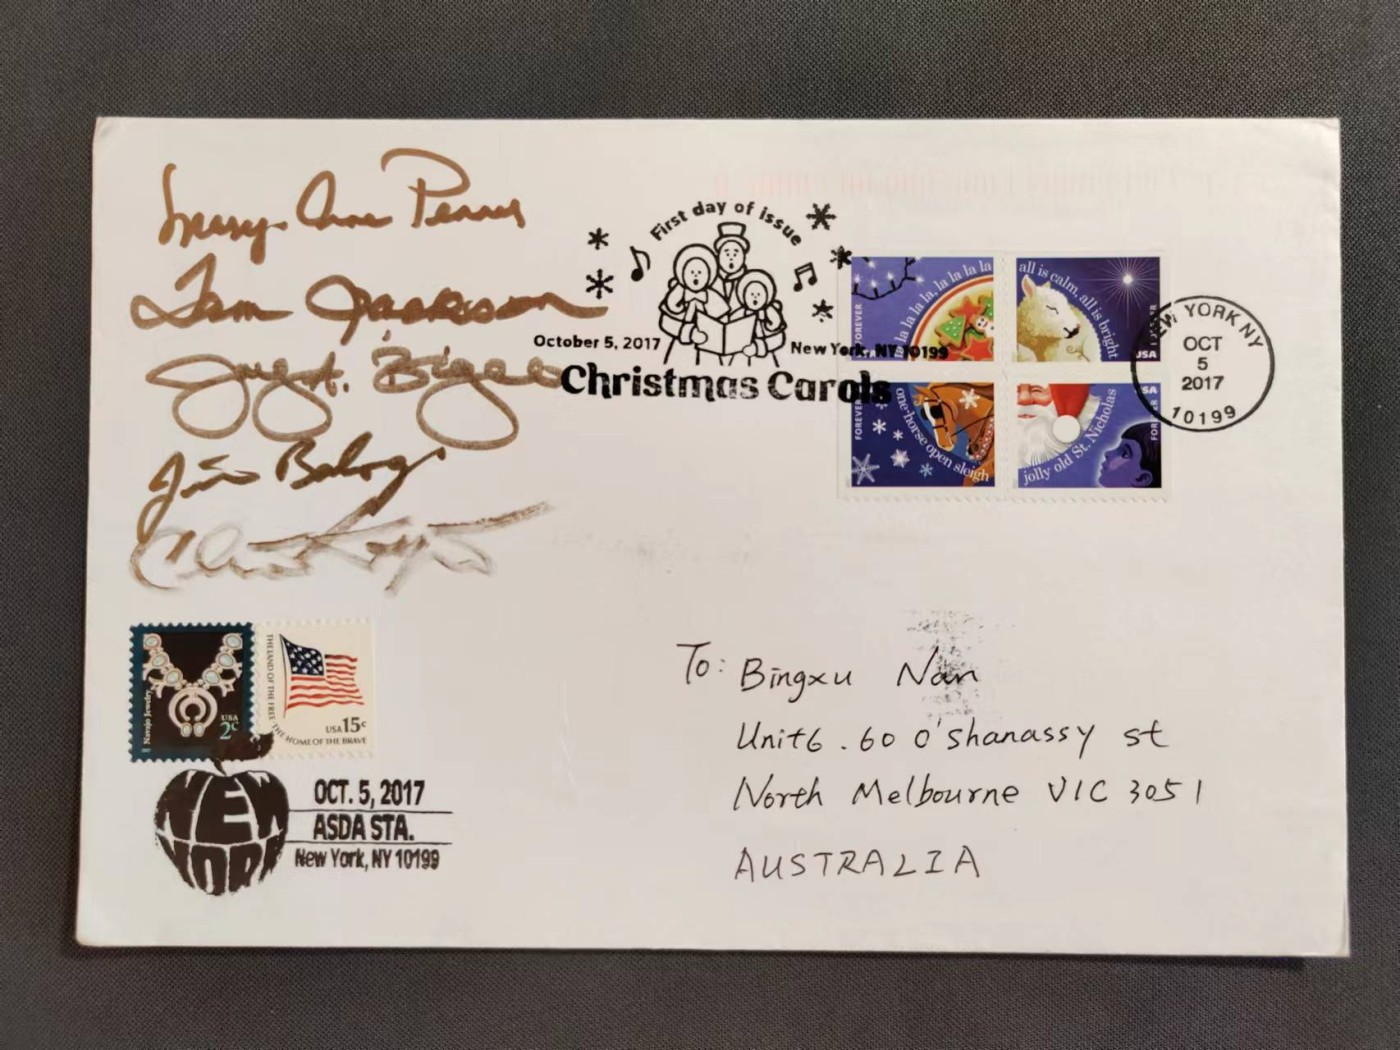 Mary-Anne Penner
Jim Balog
First day of issue
October 5, 2017
New York, NY 10199
Christmas Carols
la la la la, la la la la
FOREVER
all is calm, all is bright
USA
one-horse open sleigh
FOREVER
jolly old St. Nicholas
USA
NEW YORK NY
OCT
5
2017
10199
Navajo Jewelry
USA
2c
THE LAND OF THE FREE, THE HOME OF THE BRAVE
USA 15c
NEW
YORK
OCT. 5, 2017
ASDA STA.
New York, NY 10199
To: Bingxu Nan
Unit6 . 60 O'shanassy st
North Melbourne VIC 3051
AUSTRALIA